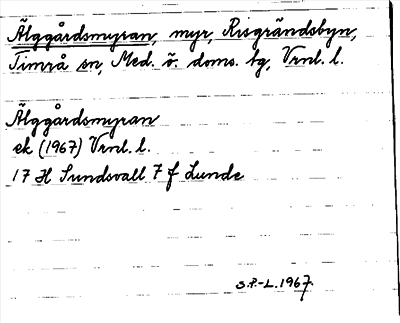 Älggårdsmyran, myr, Risgrändsbyn,
Timrå sn, Med. ö. doms. tg, Vrnl. l.
Älggårdsmyran
ek (1967) Vrnl. l.
17 H Sundsvall 7 f Lunde
S.P.-L. 1967.